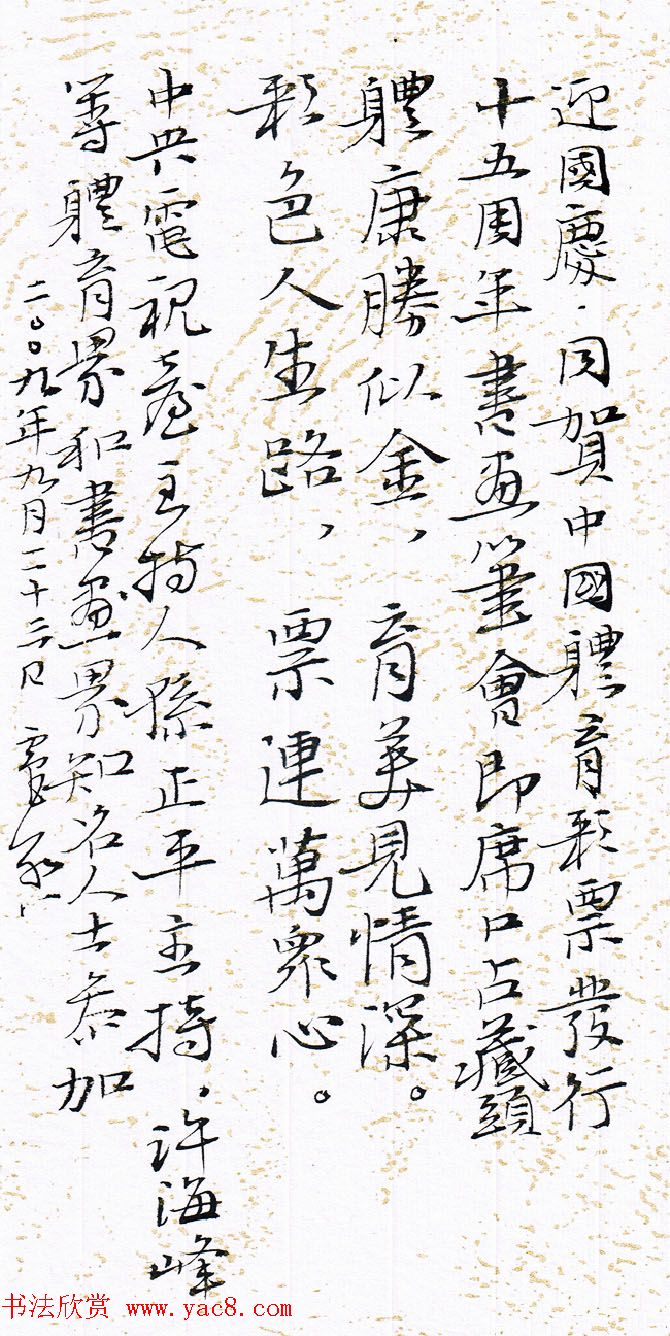 迎國慶·同賀中國體育彩票發行
十五周年書畫筆會即席口占藏頭
體康勝似金、育美見情深。
彩色人生路、票連萬眾心。
中央電視臺主持人孫正平主持。許海峰
等體育界和書畫界知名人士参加
二〇〇九年九月二十六日
书法欣赏 www.yac8.com